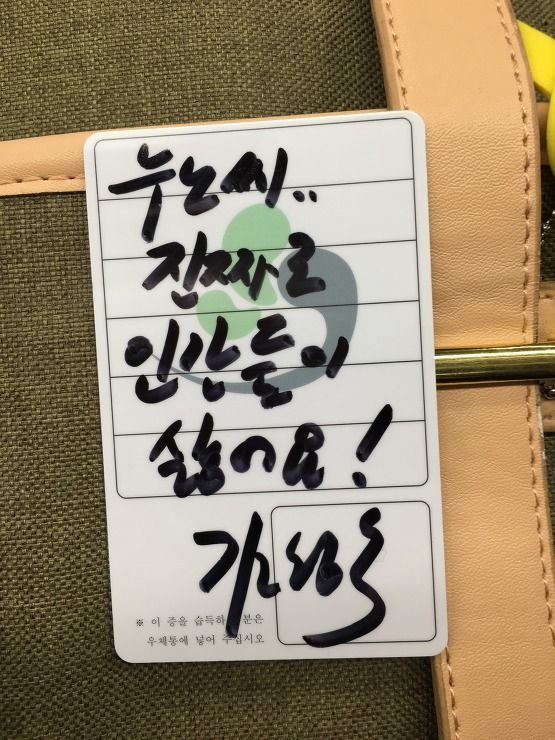 진짜로
인간들이
싫어요!
※ 이 증을 습득하 분은
우체통에 넣어 주십시오